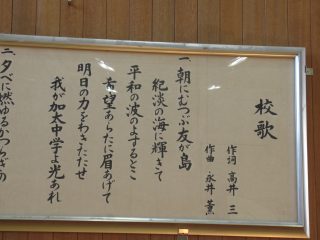 校歌
作詞 高井 三
作曲 永井 薫
一、朝にむつぶ友が島
紀淡の海に輝きて
平和の波のよするとこ
希望あらたに眉あげて
明日の力をわきたたせ
我が加太中学よ光あれ
二、夕べに燃ゆるかつらぎの